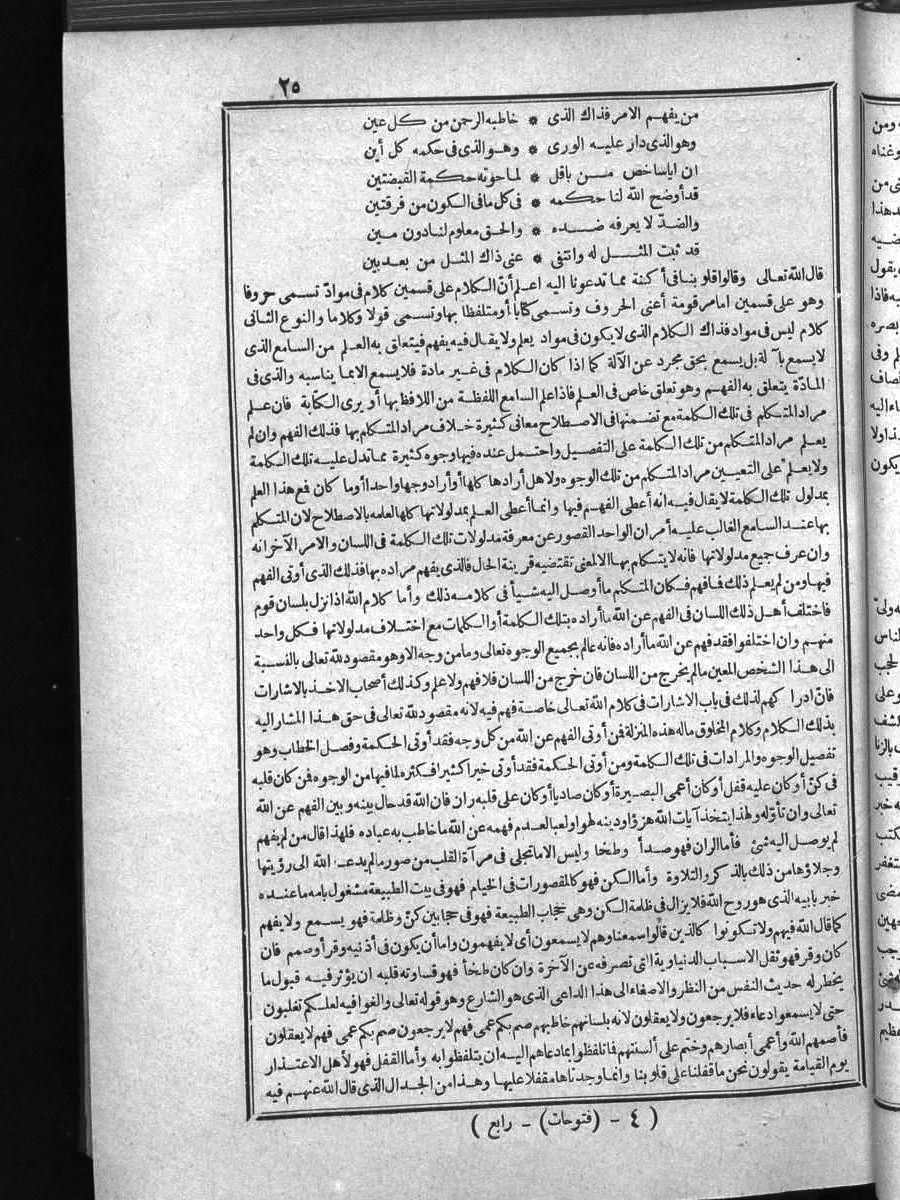 ٢٥
من يفهم الامر فذاك الذى * خاطبه الرحمن من كل عين
وهو الذى دار عليه الورى * وهو الذى فى حكمه كل أين
ان اياسا خص من باقل * لما حوته حكمة القبضتين
قد أوضح الله لنا حكمه * فى كل ما فى الكون من فرقتين
والضد لا يعرفه ضده * والحق معلوم لنا دون مين
قد ثبت المثل له وانتفى * عنى ذاك المثل من بعد بين
قال الله تعالى وقالوا قلوبنا فى أكنة مما تدعونا اليه اعلم أن الكلام على قسمين كلام فى مواد تسمى حروفا
وهو على قسمين اما مرقومة أعنى الحروف وتسمى كتابا أو متلفظا بها وتسمى قولا وكلاما والنوع الثانى
كلام ليس فى مواد فذاك الكلام الذى لا يكون فى مواد يعلم ولا يقال فيه يفهم فيتعلق به العلم من السامع الذى
لا يسمع بآلة بل يسمع بحق مجرد عن الآلة كما اذا كان الكلام فى غير مادة فلا يسمع الا بما يناسبه والذى فى
المادّة يتعلق به الفهم وهو تعلق خاص فى العلم فاذا علم السامع اللفظة من اللافظ بها أو يرى الكتابة فان علم
مراد المتكلم فى تلك الكلمة مع تضمنها فى الاصطلاح معانى كثيرة خلاف مراد المتكلم بها فذلك الفهم وان لم
يعلم مراد المتكلم من تلك الكلمة على التفصيل واحتمل عنده فيها وجوه كثيرة مما تدل عليه تلك الكلمة
ولا يعلم على التعيين مراد المتكلم من تلك الوجوه ولا هل أرادها كلها أو أراد وجها واحدا أو ما كان فمع هذا العلم
بمدلول تلك الكلمة لا يقال فيه انه أعطى الفهم فيها وانما أعطى العلم بمدلولاتها كلها لعلمه بالاصطلاح لان المتكلم
بها عند السامع الغالب عليه أمران الواحد القصور عن معرفة مدلولات تلك الكلمة فى اللسان والامر الآخر انه
وان عرف جميع مدلولاتها فانه لا يتكلم بها الا لمعنى تقتضيه قرينة الحال فالذى يفهم مراده بها فذلك الذى أوتى الفهم
فيها ومن لم يعلم ذلك فما فهم فكأن المتكلم ما أوصل اليه شيأ فى كلامه ذلك وأما كلام الله اذا نزل بلسان قوم
فاختلف أهل ذلك اللسان فى الفهم عن الله ما أراده بتلك الكلمة أو الكلمات مع اختلاف مدلولاتها فكل واحد
منهم وان اختلفوا فقد فهم عن الله ما أراده فانه عالم بجميع الوجوه تعالى وما من وجه الا وهو مقصود لله تعالى بالنسبة
الى هذا الشخص المعين ما لم يخرج من اللسان فان خرج من اللسان فلا فهم ولا علم وكذلك أصحاب الاخذ بالاشارات
فان ادرا كهم لذلك فى باب الاشارات فى كلام الله تعالى خاصة فهم فيه لانه مقصود لله تعالى فى حق هذا المشار اليه
بذلك الكلام وكلام المخلوق ماله هذه المنزلة فمن أوتى الفهم عن الله من كل وجه فقد أوتى الحكمة وفصل الخطاب وهو
تفصيل الوجوه والمرادات فى تلك الكلمة ومن أوتى الحكمة فقد أوتى خيرا كثيرا فكثره لما فيها من الوجوه فمن كان قلبه
فى كنّ أو كان عليه قفل أو كان أعمى البصيرة أو كان صاديا أو كان على قلبه ران فان الله قد حال بينه وبين الفهم عن الله
تعالى وان تأوّله ولهذا يتخذ آيات الله هزؤا ودينه لهوا ولعبا لعدم فهمه عن الله ما خاطب به عباده فلهذا قال من لم يفهم
لم يوصل اليه شئ فأما الران فهو صدأ وطخا وليس الا ما تجلى فى مرآة القلب من صور ما لم يدع الله الى رؤيتها
وجلاؤها من ذلك بالذكر والتلاوة وأما الكن فهو كالمقصورات فى الخيام فهو فى بيت الطبيعة مشغول بامه ما عنده
خبر بابيه الذى هو روح الله فلا يزال فى ظلمة الكن وهى حجاب الطبيعة فهو فى حجابين كنّ وظلمة فهو يسمع ولا يفهم
كما قال الله فيهم ولا تكونوا كالذين قالوا سمعنا وهم لا يسمعون أى لا يفهمون واما أن يكون فى أذنيه وقر أو صمم فان
كان وقر فهو ثقل الاسباب الدنياوية التى تصرفه عن الآخرة وان كان طخأ فهو قساوته قلبه ان يؤثر فيه قبول ما
يخطر له حديث النفس من النظر والاصغاء الى هذا الداعى الذى هو الشارع وهو قوله تعالى والغوا فيه لعلكم تغلبون
حتى لا يسمعوا دعاء فلا يرجعون ولا يعقلون لانه بلسانهم خاطبهم صم بكم عمى فهم لا يرجعون صم بكم عمى فهم لا يعقلون
فأصمهم الله وأعمى أبصارهم وختم على ألسنتهم فما تلفظوا بما دعاهم اليه ان يتلفظوا به وأما القفل فهو لأهل الاعتذار
يوم القيامة يقولون نحن ما قفلنا على قلوبنا وانما وجدناها مقفلا عليها وهذا من الجدال الذى قال الله عنهم فيه
( ٤ - (فتوحات) - رابع )